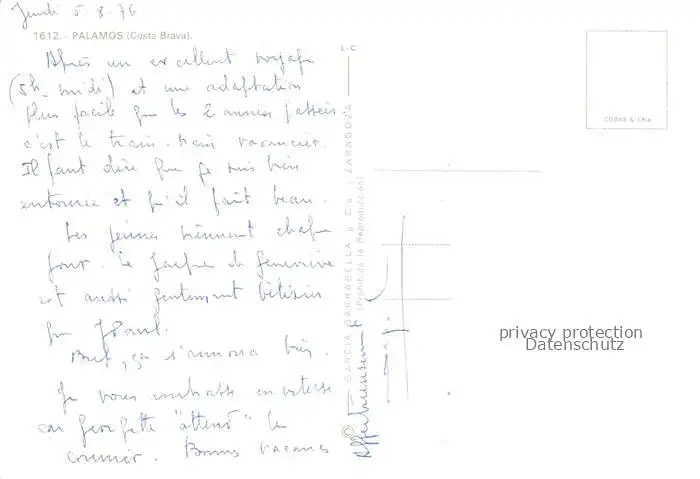 Jeudi 5.8.76
1612. - PALAMOS (Costa Brava).
Après un excellent voyage
(5h - midi) et une adaptation
plus facile que les 2 années passées
c'est le train-train vacancier.
Il faut dire que je suis bien
entourée et qu'il fait beau.
Les jeunes viennent chaque
jour. Le Jacques de Geneviève
est aussi gentiment
que JPaul.
Bref, ça s'annonce bien.
Je vous embrasse en vitesse
car Georgette "attend" le
courrier. Bonnes vacances
Affectueusement
L-C
© GARCIA GARRABELLA y Cía. - ZARAGOZA
(Prohibida la Reproducción)
privacy protection
Datenschutz